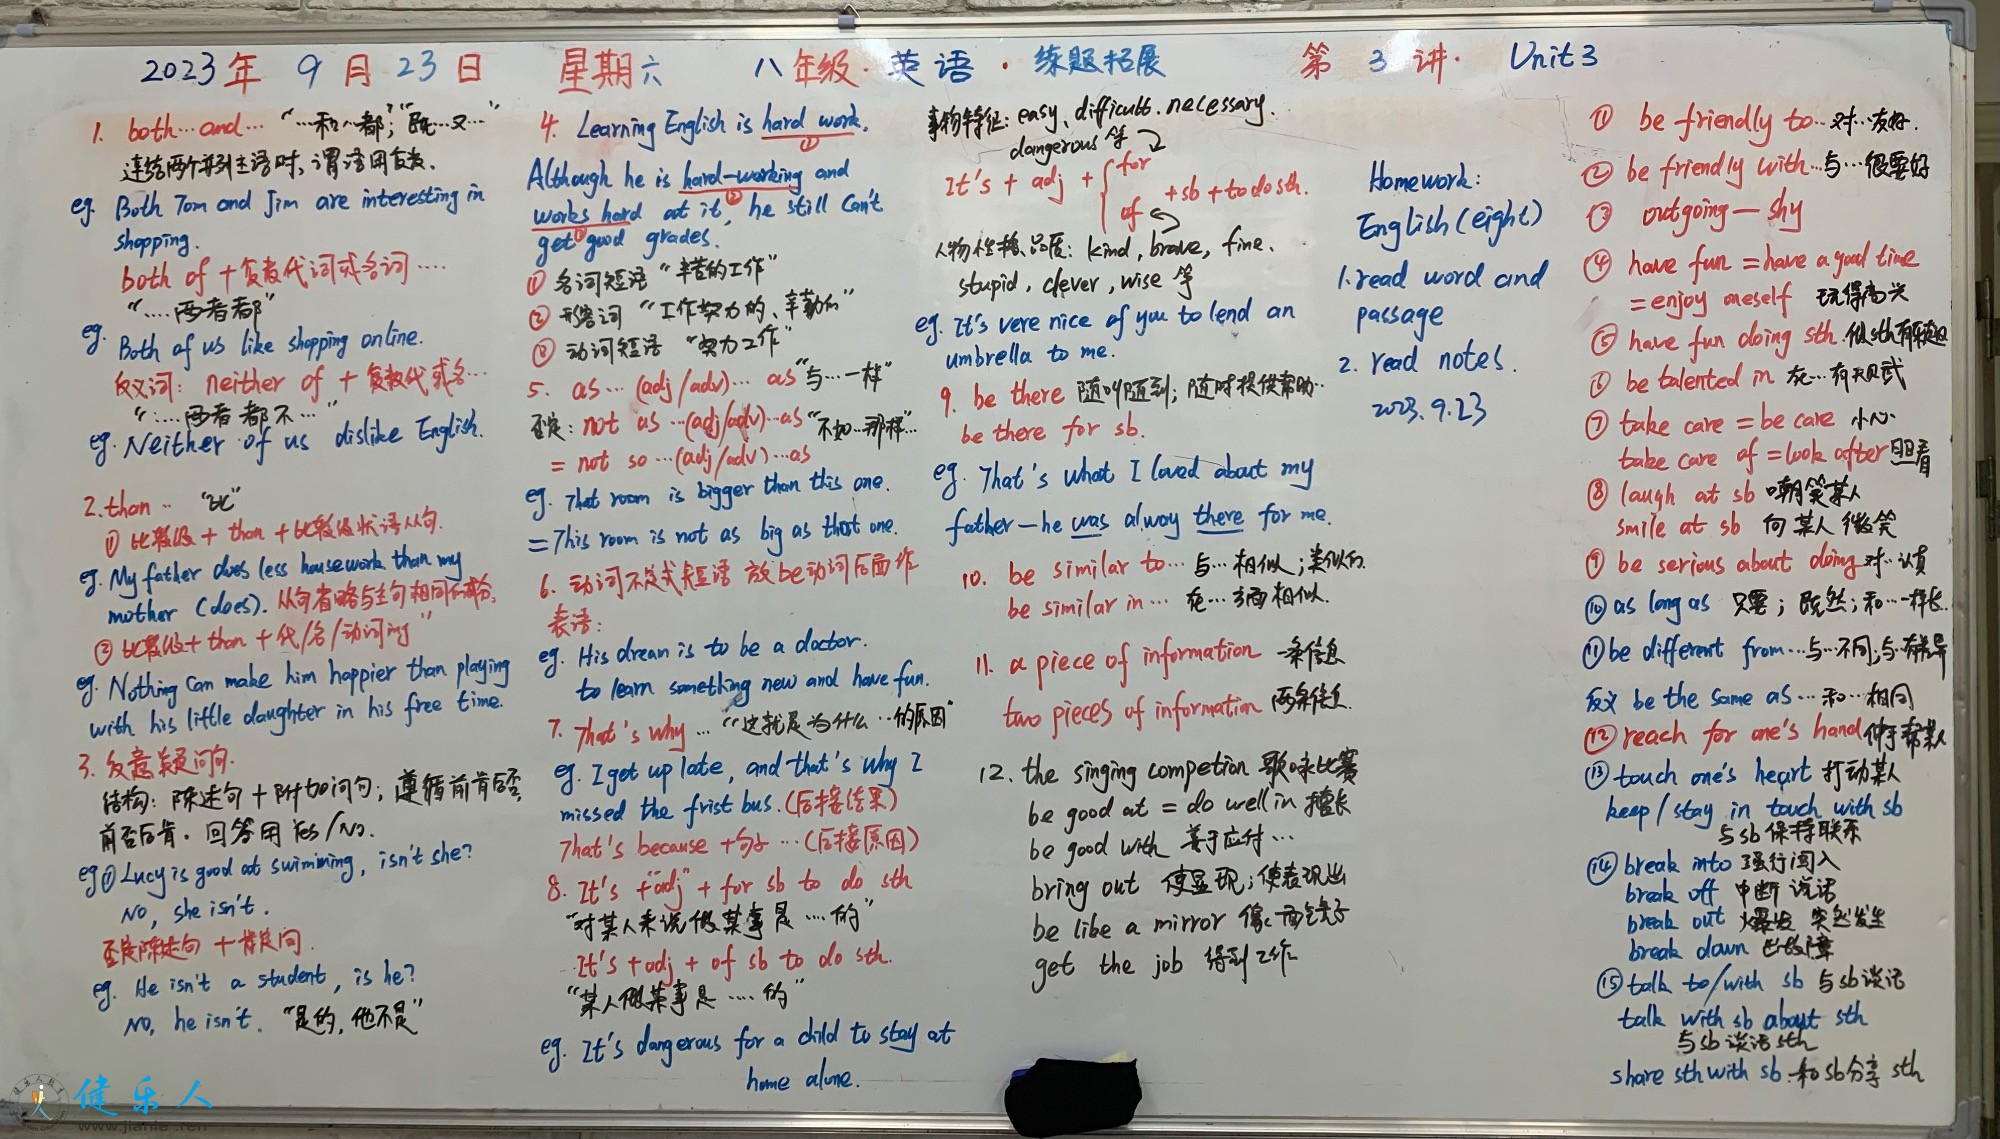 2023年 9月23日 星期六 八年级·英语·练题拓展 第3讲· Unit3
1. both…and… “…和…都”;“既…又…”
连结两个并列主语时,谓语用复数.
eg. Both Tom and Jim are interesting in
shopping.
both of + 复数代词或名词….
“….两者都”
eg. Both of us like shopping online.
反义词: neither of + 复数代或名…
“….两者都不…”
eg. Neither of us dislike English.
2. than… “比”
① 比较级 + than + 比较级状语从句.
eg. My father does less housework than my
mother (does). 从句省略与主句相同的部分,
② 比较级 + than + 代/名/动词ing
eg. Nothing can make him happier than playing
with his little daughter in his free time.
3. 反意疑问句.
结构: 陈述句 + 附加问句; 遵循前肯后否,
前否后肯. 回答用 Yes/No.
eg① Lucy is good at swimming, isn't she?
No, she isn't.
否定陈述句 + 肯定问.
eg. He isn't a student, is he?
No, he isn't. “是的,他不是”
4. Learning English is hard work.
①
Although he is hard-working and
②
works hard at it, he still can't
③
get good grades.
① 名词短语 “辛苦的工作”
② 形容词 “工作努力的、辛勤的”
③ 动词短语 “努力工作”
5. as…(adj/adv)…as “与…一样”
否定: not as…(adj/adv)…as “不如…那样…
= not so…(adj/adv)…as
eg. That room is bigger than this one.
= This room is not as big as that one.
6. 动词不定式短语 放be动词后面作
表语:
eg. His dream is to be a doctor.
to learn something new and have fun.
7. That's why … “这就是为什么…的原因”
eg. I get up late, and that's why I
missed the frist bus. (后接结果)
That's because + 句子…(后接原因)
8. It's + “adj” + for sb to do sth
“对某人来说做某事是….的”
It's + adj + of sb to do sth.
“某人做某事是….的”
eg. It's dangerous for a child to stay at
home alone.
事物特征: easy, difficult, necessary.
dangerous 等
It's + adj + { for
of + sb + to do sth.
人物性格、品质: kind, brave, fine.
stupid, clever, wise 等
eg. It's vere nice of you to lend an
umbrella to me.
9. be there 随叫随到; 随时提供帮助…
be there for sb.
eg. That's what I loved about my
father — he was alway there for me.
10. be similar to… 与…相似; 类似的.
be similar in… 在…方面相似.
11. a piece of information 一条信息
two pieces of information 两条信息.
12. the singing competion 歌咏比赛
be good at = do well in 擅长
be good with 善于应付…
bring out 使显现; 使表现出
be like a mirror 像一面镜子
get the job 得到工作
Homework:
English (eight)
1. read word and
passage
2. read notes.
2023.9.23
① be friendly to… 对…友好.
② be friendly with… 与…很要好
③ outgoing — shy
④ have fun = have a good time
= enjoy oneself 玩得高兴
⑤ have fun doing sth. 做sth有乐趣
⑥ be talented in 在…有天赋
⑦ take care = be care 小心
take care of = look after 照看
⑧ laugh at sb 嘲笑某人
smile at sb 向某人微笑
⑨ be serious about doing 对…认真
⑩ as long as 只要; 既然; 和…一样长.
⑪ be different from… 与…不同; 与…有差异
反义 be the same as… 和…相同
⑫ reach for one's hand 伸手帮某人
⑬ touch one's heart 打动某人
keep/stay in touch with sb
与sb保持联系
⑭ break into 强行闯入
break off 中断 说话
break out 爆发 突然发生
break down 出故障
⑮ talk to/with sb 与sb谈话
talk with sb about sth
与sb谈话sth
share sth with sb. 和sb分享sth
健乐人